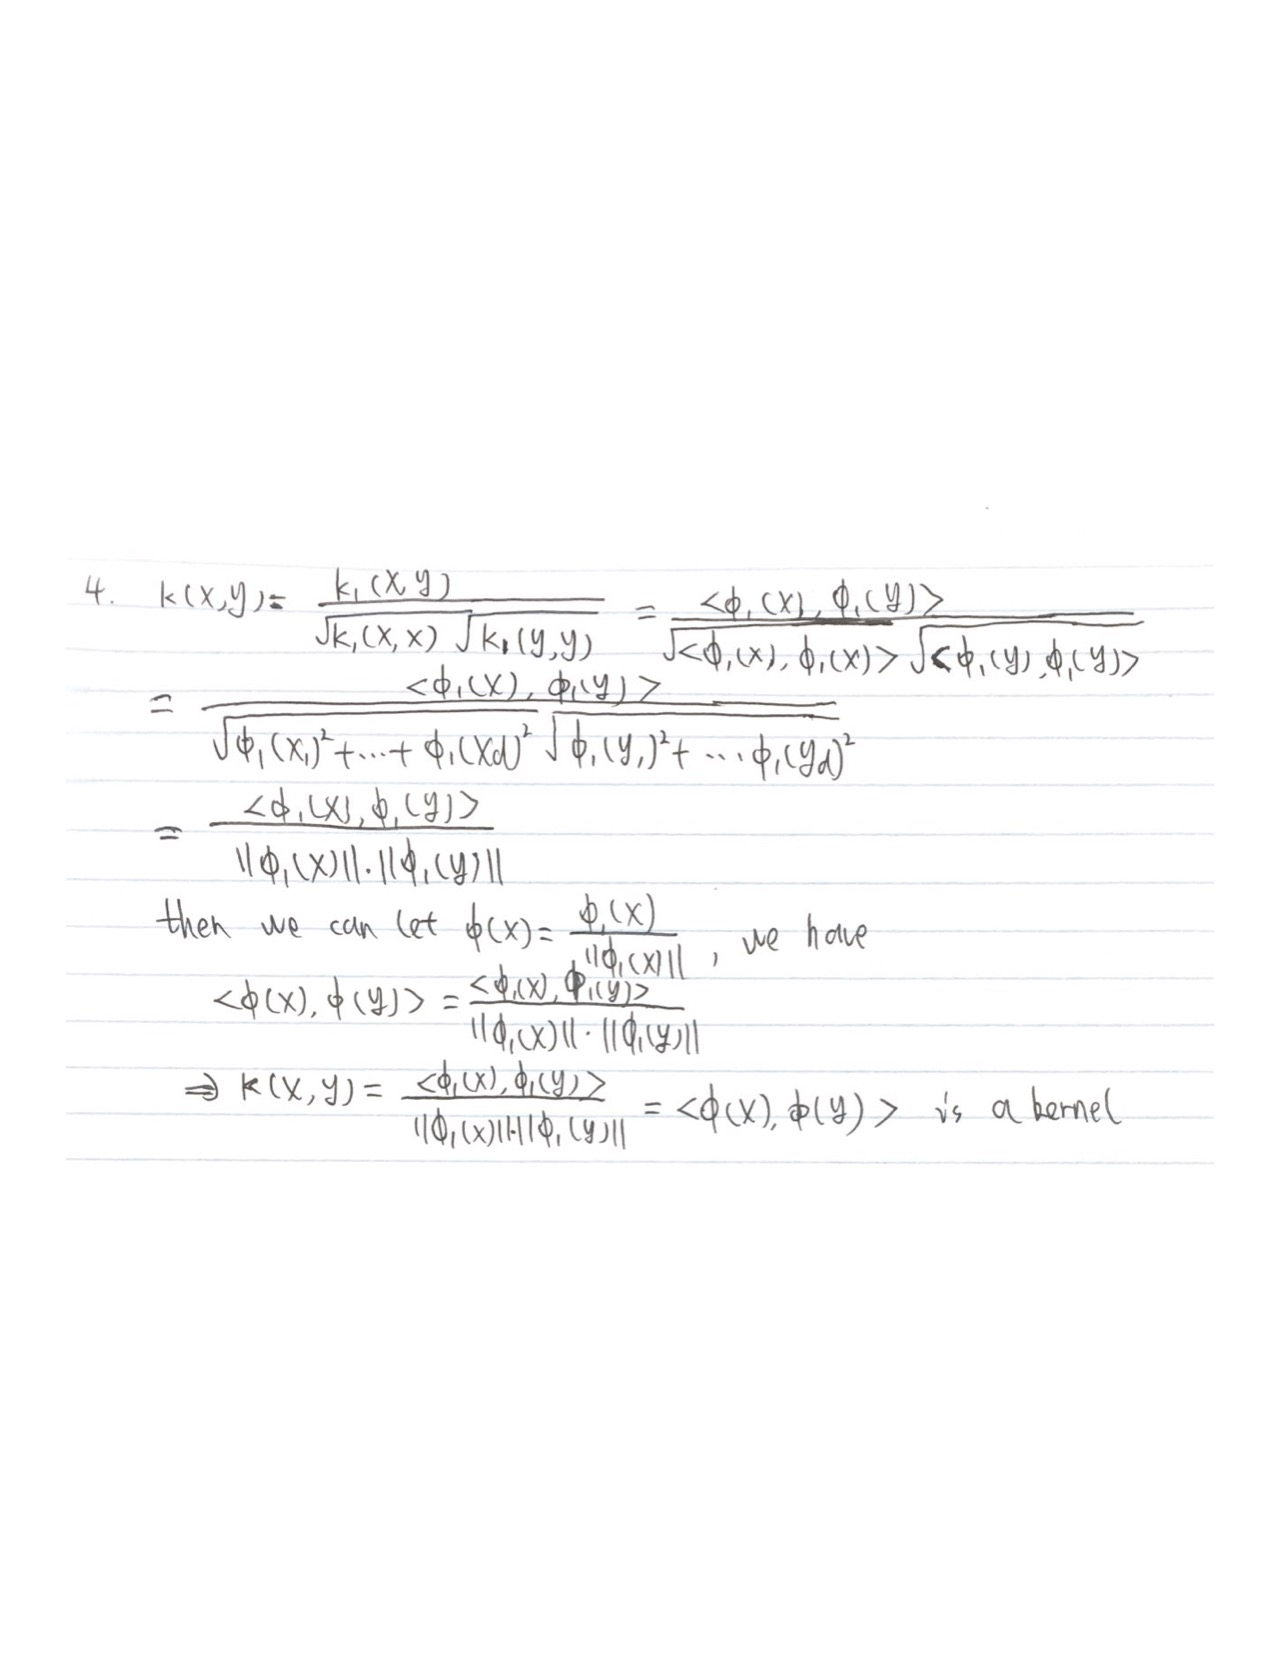 4. k(x,y) = k₁(x,y) / √k₁(x,x) √k₁(y,y) = <ϕ₁(x), ϕ₁(y)> / √<ϕ₁(x), ϕ₁(x)> √<ϕ₁(y), ϕ₁(y)>
= <ϕ₁(x), ϕ₁(y)> / √ϕ₁(x₁)²+...+ ϕ₁(xd)² √ϕ₁(y₁)²+ ... ϕ₁(yd)²
= <ϕ₁(x), ϕ₁(y)> / ||ϕ₁(x)||·||ϕ₁(y)||
then we can let ϕ(x) = ϕ₁(x) / ||ϕ₁(x)||, we have
<ϕ(x), ϕ(y)> = <ϕ₁(x), ϕ₁(y)> / ||ϕ₁(x)||·||ϕ₁(y)||
⇒ k(x,y) = <ϕ₁(x), ϕ₁(y)> / ||ϕ₁(x)||·||ϕ₁(y)|| = <ϕ(x), ϕ(y)> is a kernel